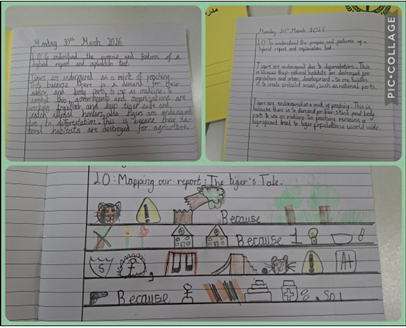 Monday 30th March 2026
LO: To understand the purpose and features of a
hybrid report and explanation text.
Tigers are endangered as a result of poaching.
This is because there is a demand for their
skin and body parts, to use as medicine. To
combat this, governments and organisations are
working together and keep tigers safe and
catch illegal hunters. Also tigers are endangered
due to deforestation. This is because their na-
tural habitats are destroyed for agriculture.
Monday 30th March 2026
LO: To understand the purpose and features of a
hybrid report and explanation text.
Tigers are endangered due to deforestation. This
is because their natural habitats are destroyed for
agriculture and urban development.
to create protected areas, such as national parks.
Tigers are endangered as a result of poaching. This is
because there is demand for their skin and body
parts to use as medicine. So poaching remains a
significant threat to tiger populations world wide.
PIC•COLLAGE
LO: Mapping our report: The tiger's Tale.
Because
Because 1 8
S
, A+
Because , So!